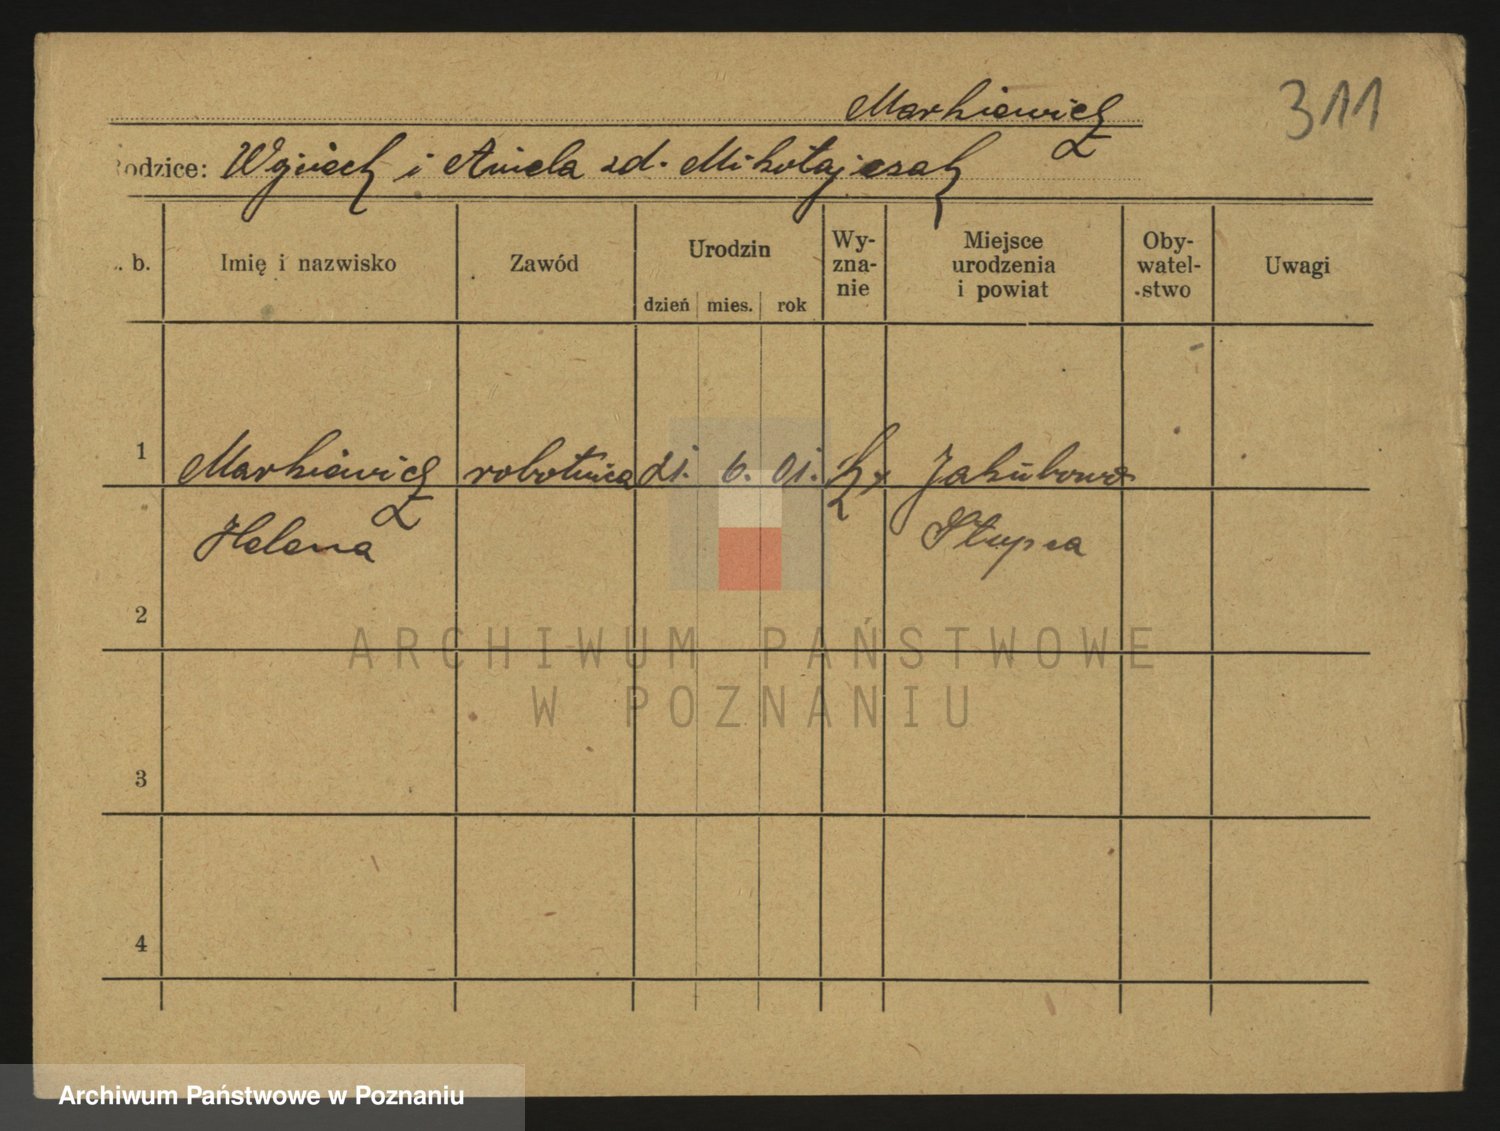 Markiewicz
311
odzice: Wojciech i Aniela zd. Mikołajczak
. b.
Imię i nazwisko
Zawód
Urodzin
dzień mies. rok
Wy-
zna-
nie
Miejsce
urodzenia
i powiat
Oby-
watel-
stwo
Uwagi
1
Markiewicz robotnica 21. 6. 01. Jakubowo
Helena Słupca
2
3
4
ARCHIWUM PAŃSTWOWE
W POZNANIU
Archiwum Państwowe w Poznaniu